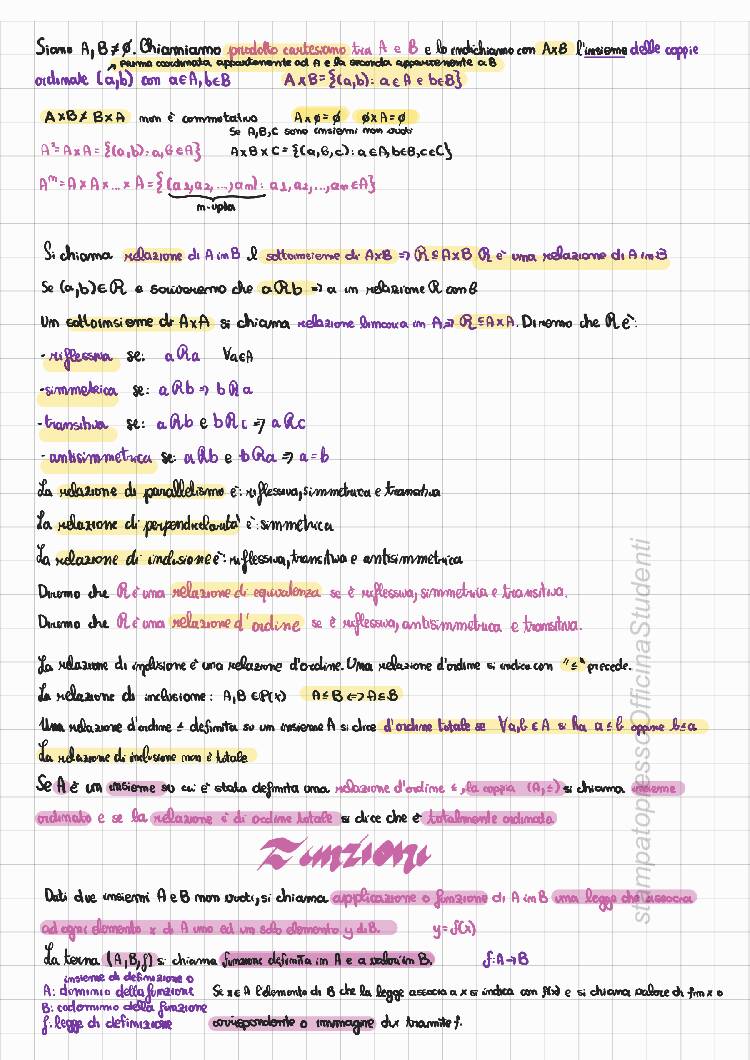 Siano A, B ≠ ∅. Chiamiamo prodotto cartesiano tra A e B e lo indichiamo con A×B l'insieme delle coppie
↗ prima coordinata appartenente ad A e la seconda appartenente a B
ordinate (a,b) con a∈A, b∈B A×B = {(a,b): a∈A e b∈B}
A×B ≠ B×A non è commutativo A×∅ = ∅ ∅×A = ∅
Se A, B, C sono insiemi non vuoti
A² = A×A = {(a,b): a,b∈A} A×B×C = {(a,b,c): a∈A, b∈B, c∈C}
Aⁿ = A×A×...×A = {(a1, a2, ..., an): a1, a2, ..., an ∈A}
n-upla
Si chiama relazione di A in B il sottoinsieme di A×B => R⊆A×B R è una relazione di A in B
Se (a,b)∈R e scriveremo che aRb => a in relazione R con b
Un sottoinsieme di A×A si chiama relazione binaria in A => R⊆A×A. Diremo che R è:
- riflessiva se: aRa ∀a∈A
- simmetrica se: aRb => bRa
- transitiva se: aRb e bRc => aRc
- antisimmetrica se: aRb e bRa => a=b
La relazione di parallelismo è: riflessiva, simmetrica e transitiva
La relazione di perpendicolarità è: simmetrica
La relazione di inclusione è: riflessiva, transitiva e antisimmetrica
Diremo che R è una relazione di equivalenza se è riflessiva, simmetrica e transitiva.
Diremo che R è una relazione d'ordine se è riflessiva, antisimmetrica e transitiva.
La relazione di inclusione è una relazione d'ordine. Una relazione d'ordine si indica con "≤" precede.
La relazione di inclusione: A,B ∈P(x) A≤B <=> A⊆B
Una relazione d'ordine ≤ definita su un insieme A si dice d'ordine totale se ∀a,b ∈A si ha a≤b oppure b≤a
La relazione di inclusione non è totale
Se A è un insieme su cui è stata definita una relazione d'ordine ≤, la coppia (A,≤) si chiama insieme
ordinato e se la relazione è di ordine totale si dice che è totalmente ordinato.
Funzioni
Dati due insiemi A e B non vuoti, si chiama applicazione o funzione di A in B una legge che associa
ad ogni elemento x di A uno ed un solo elemento y di B. y=f(x)
La terna (A,B,f) si chiama funzione definita in A e a valori in B. f:A→B
insieme di definizione o
A: dominio della funzione Se x∈A l'elemento di B che la legge associa a x si indica con f(x) e si chiama valore di f in x o
B: codominio della funzione
f: legge di definizione corrispondente o immagine di x tramite f.
stampatopressoOfficinaStudenti